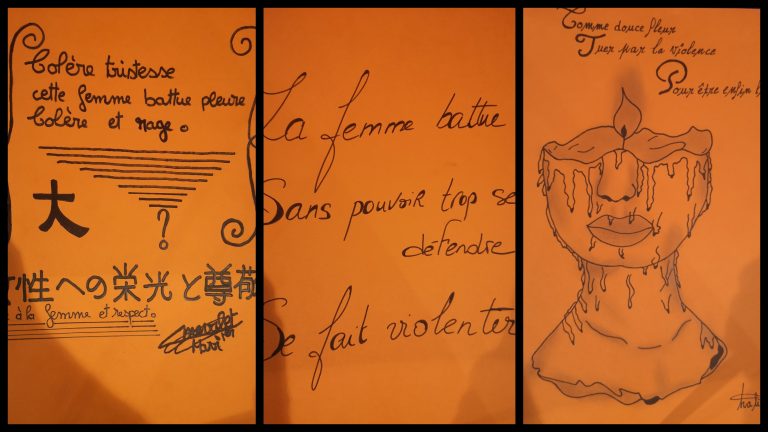 Colère tristesse
cette femme battue pleure
Colère et rage.
大
?
性への栄光と尊敬
à la femme et respect.
La femme battue
Sans pouvoir trop se
défendre
Se fait violenter
Comme douce fleur
Tuer par la violence
Pour être enfin